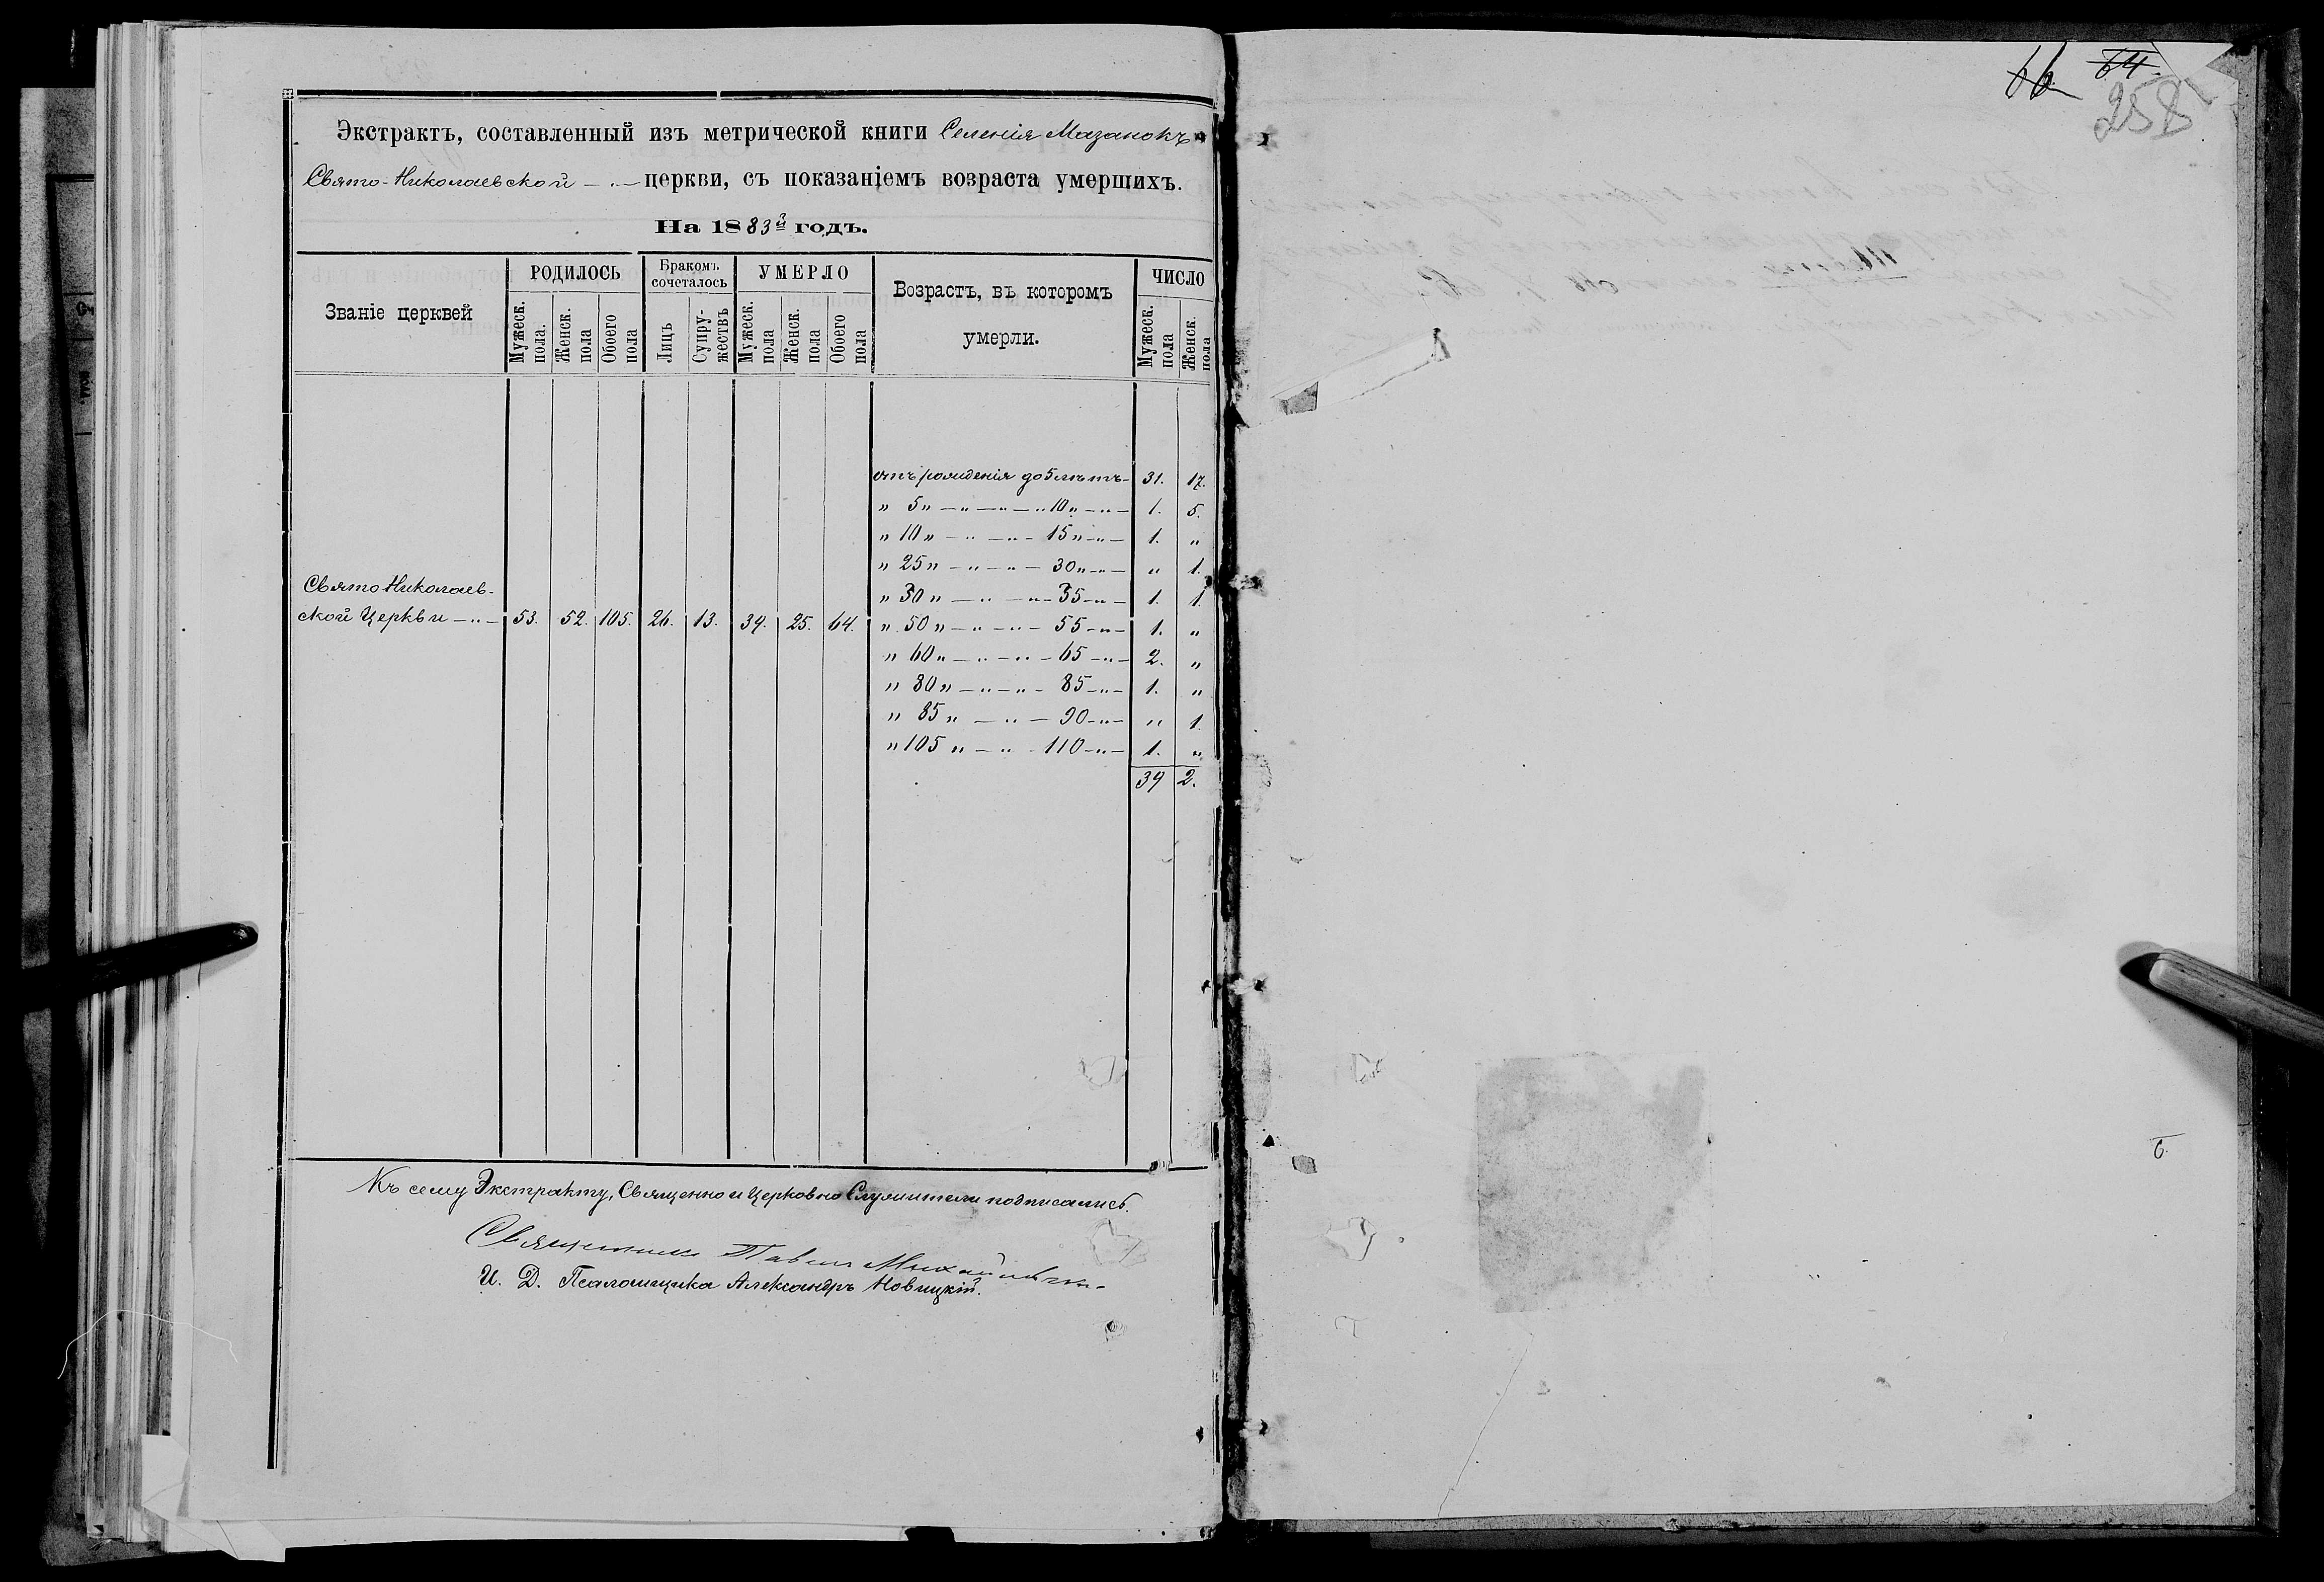 Экстрактъ, составленный изъ метрической книги Селенія Мазанокъ
Свято-Николаевской — „ — церкви, съ показаніемъ возраста умершихъ.
На 1883й годъ.
Званіе церквей
РОДИЛОСЬ
Мужеск. пола.
Женск. пола
Обоего пола
Бракомъ сочеталось
Лицъ
Супружествъ
УМЕРЛО
Мужеск. пола
Женск. пола
Обоего пола
Возрастъ, въ которомъ
умерли.
ЧИСЛО
Мужеск. пола
Женск. пола
отъ рожденія до 5 лѣтъ — 31. 17.
„ 5 „ — „ — „ — „ 10 „ — „ — 1. 5.
„ 10 „ — „ — „ — 15 „ — „ — 1. „
„ 25 „ — „ — „ — 30 „ — „ — „ 1.
„ 30 „ — „ — „ — 35 — „ — 1. 1.
Свято Николаев-
ской Церкви — „ — 53. 52. 105. 26. 13. 39. 25. 64. „ 50 „ — „ — „ — 55 — „ — 1. „
„ 60 „ — „ — „ — 65 — „ — 2. „
„ 80 „ — „ — „ — 85 — „ — 1. „
„ 85 „ — „ — 90 — „ — „ 1.
„ 105 „ — „ — 110 — „ — 1. „
39 2.
Къ сему Экстракту, Священно и Церковно Служители подписались.
Священникъ Павелъ
И. Д. Псаломщика Александръ Новицкій.
66 64.
258